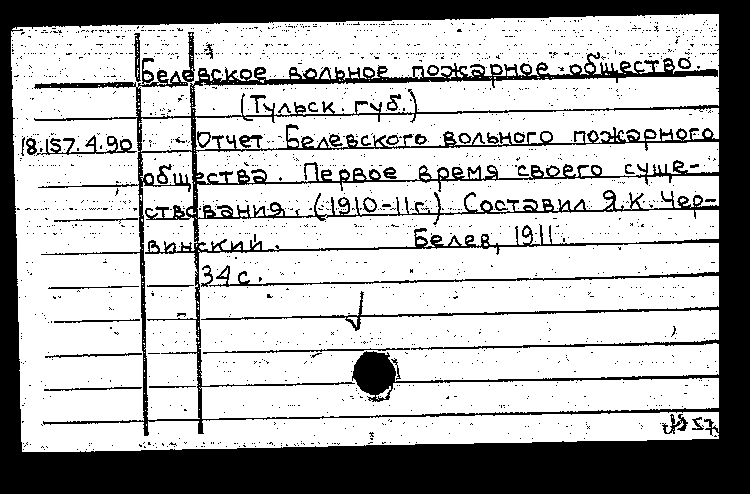 Белевское вольное пожарное общество.
(Тульск. губ.)
18.157.4.90 Отчет Белевского вольного пожарного
общества. Первое время своего суще-
ствования. (1910-11г.) Составил Я.К. Чер-
винский. Белев, 1911.
34 с.